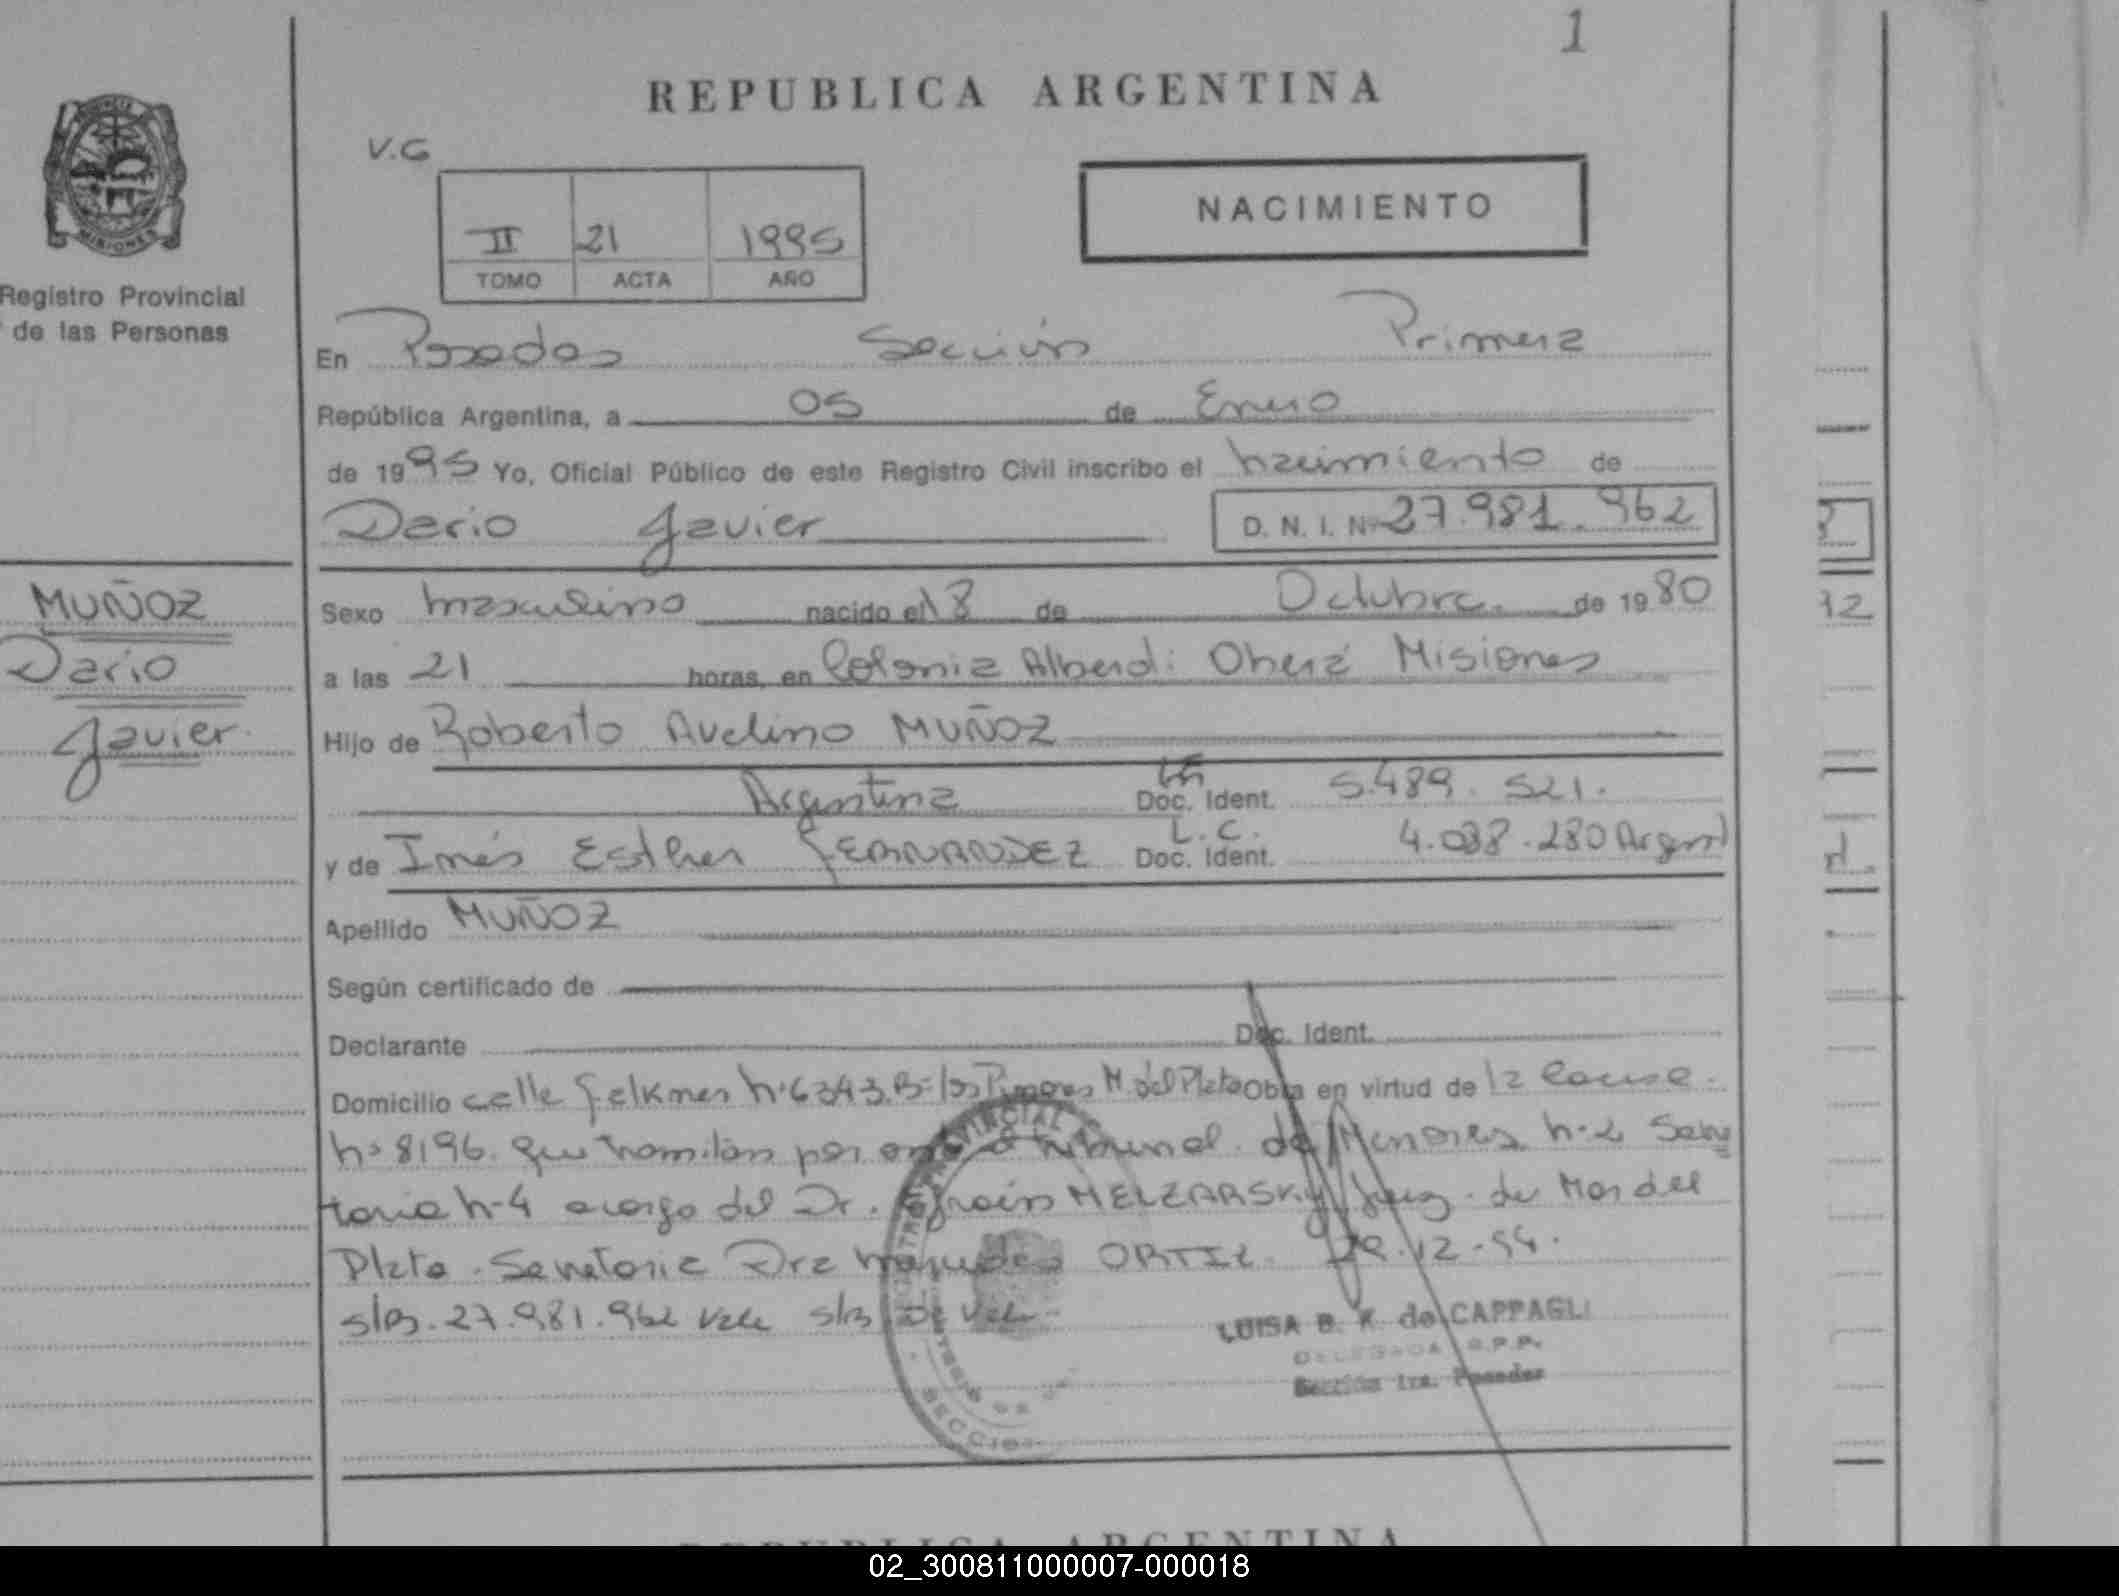 1
REPUBLICA ARGENTINA
V.G
NACIMIENTO
II 21 1995
TOMO ACTA AÑO
MISIONES
Registro Provincial
de las Personas
En Posadas Sección Primera
República Argentina, a 05 de Enero
de 1995 Yo, Oficial Público de este Registro Civil inscribo el nacimiento de
Dario Javier D. N. I. Nº 27.981.962
MUÑOZ
Dario
Javier
Sexo masculino nacido el 18 de Octubre de 1980
a las 21 horas, en Colonia Alberdi Oberá Misiones
Hijo de Roberto Avelino MUÑOZ
Argentina Doc. Ident. 5.489.521.
L.C.
y de Inés Esther FERNANDEZ Doc. Ident. 4.088.280 Argent
Apellido MUÑOZ
Según certificado de
Declarante Doc. Ident.
Domicilio calle Felkner nº 6343 Bº los M. del Plata Obra en virtud de la causa
nº 8196 que tramitan por ante el tribunal de Menores nº 2 Secre
taria nº 4 a cargo del Dr. MELZARSKY Juez de Mar del
Plata. Secretaria Dra Mercedes ORTIZ 12.94.
s/b. 27.981.962 vale s/b vale
LUISA B. K. de CAPPAGLI
DELEGADA R.P.P.
Sección 1ra. Posadas
PROVINCIAL
SECCION
12
REPUBLICA ARGENTINA
02_300811000007-000018